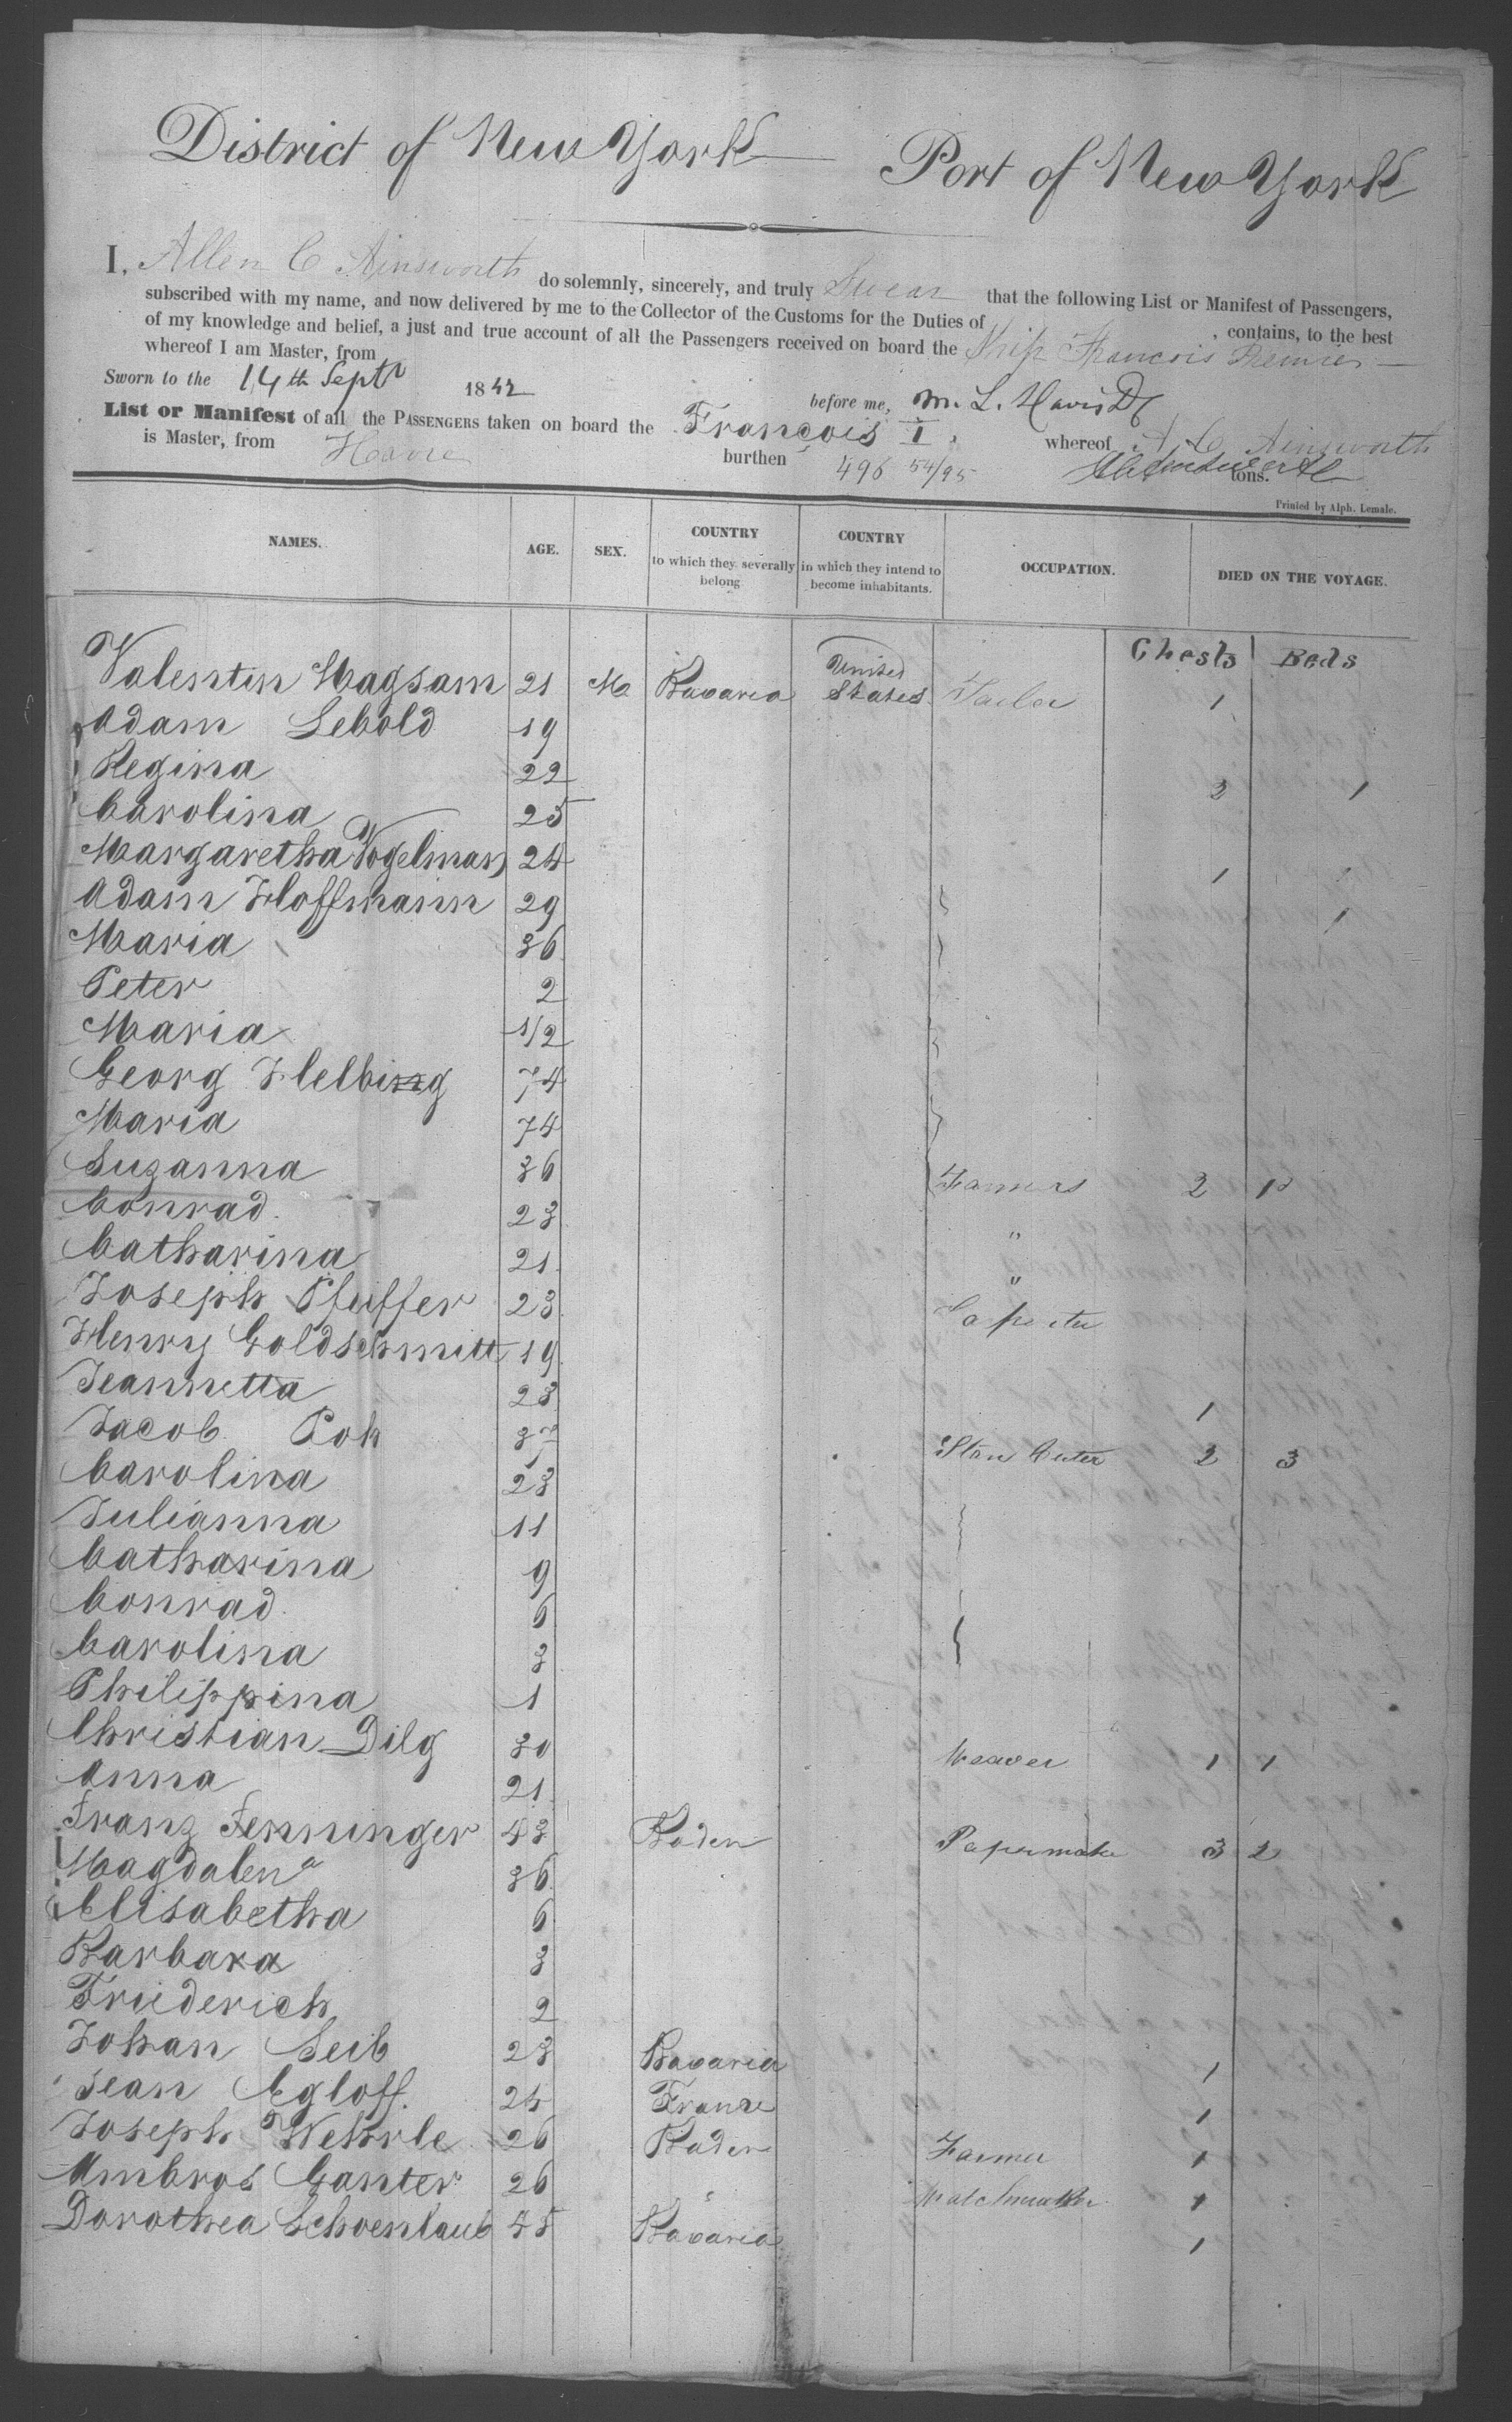 District of New York Port of New York
I, Allen C Ainsworth do solemnly, sincerely, and truly Swear that the following List or Manifest of Passengers,
subscribed with my name, and now delivered by me to the Collector of the Customs for the Duties of , contains, to the best
of my knowledge and belief, a just and true account of all the Passengers received on board the Ship Francois Premier
whereof I am Master, from
Sworn to the 14th Sept 1842 before me, M. L. Davis
List or Manifest of all the PASSENGERS taken on board the François I. whereof A. C. Ainsworth
is Master, from Havre burthen 496 54/95 tons.
Printed by Alph. Lemale.
NAMES. AGE. SEX. COUNTRY to which they severally belong COUNTRY in which they intend to become inhabitants. OCCUPATION. DIED ON THE VOYAGE.
Chests Beds
Valentin Magsam 21 M Bavaria United States Tailor 1
Adam Sebold 19
Regina 22 3 1
Carolina 25
Margaretha Vogelman 24 1
Adam Hoffmann 29 1
Maria 36
Peter 2
Maria 1/2
Georg Helbing 74
Maria 74
Suzanna 36 Farmers 2
Conrad 23 "
Catharina 21 "
Joseph Pfeiffer 23
Henry Goldschmitt 19
Jeannetta 23 1
Jacob Poh 37 Stone Cutter 2 3
Carolina 23
Julianna 11
Catharina 9
Conrad 6
Carolina 3
Philippina 1
Christian Dilg 30 Weaver 1 1
Anna 21
Franz Fenninger 43 Baden Papermaker 3 2
Magdalena 36
Elisabetha 6
Barbara 3
Friederich 2
Johan Seib 23 Bavaria 1
Jean Egloff 24 France 1
Joseph Wehrle 26 Baden Farmer 1
Ambros Ganter 26 " Watchmaker 1
Dorothea Schoenlaub 45 Bavaria 1